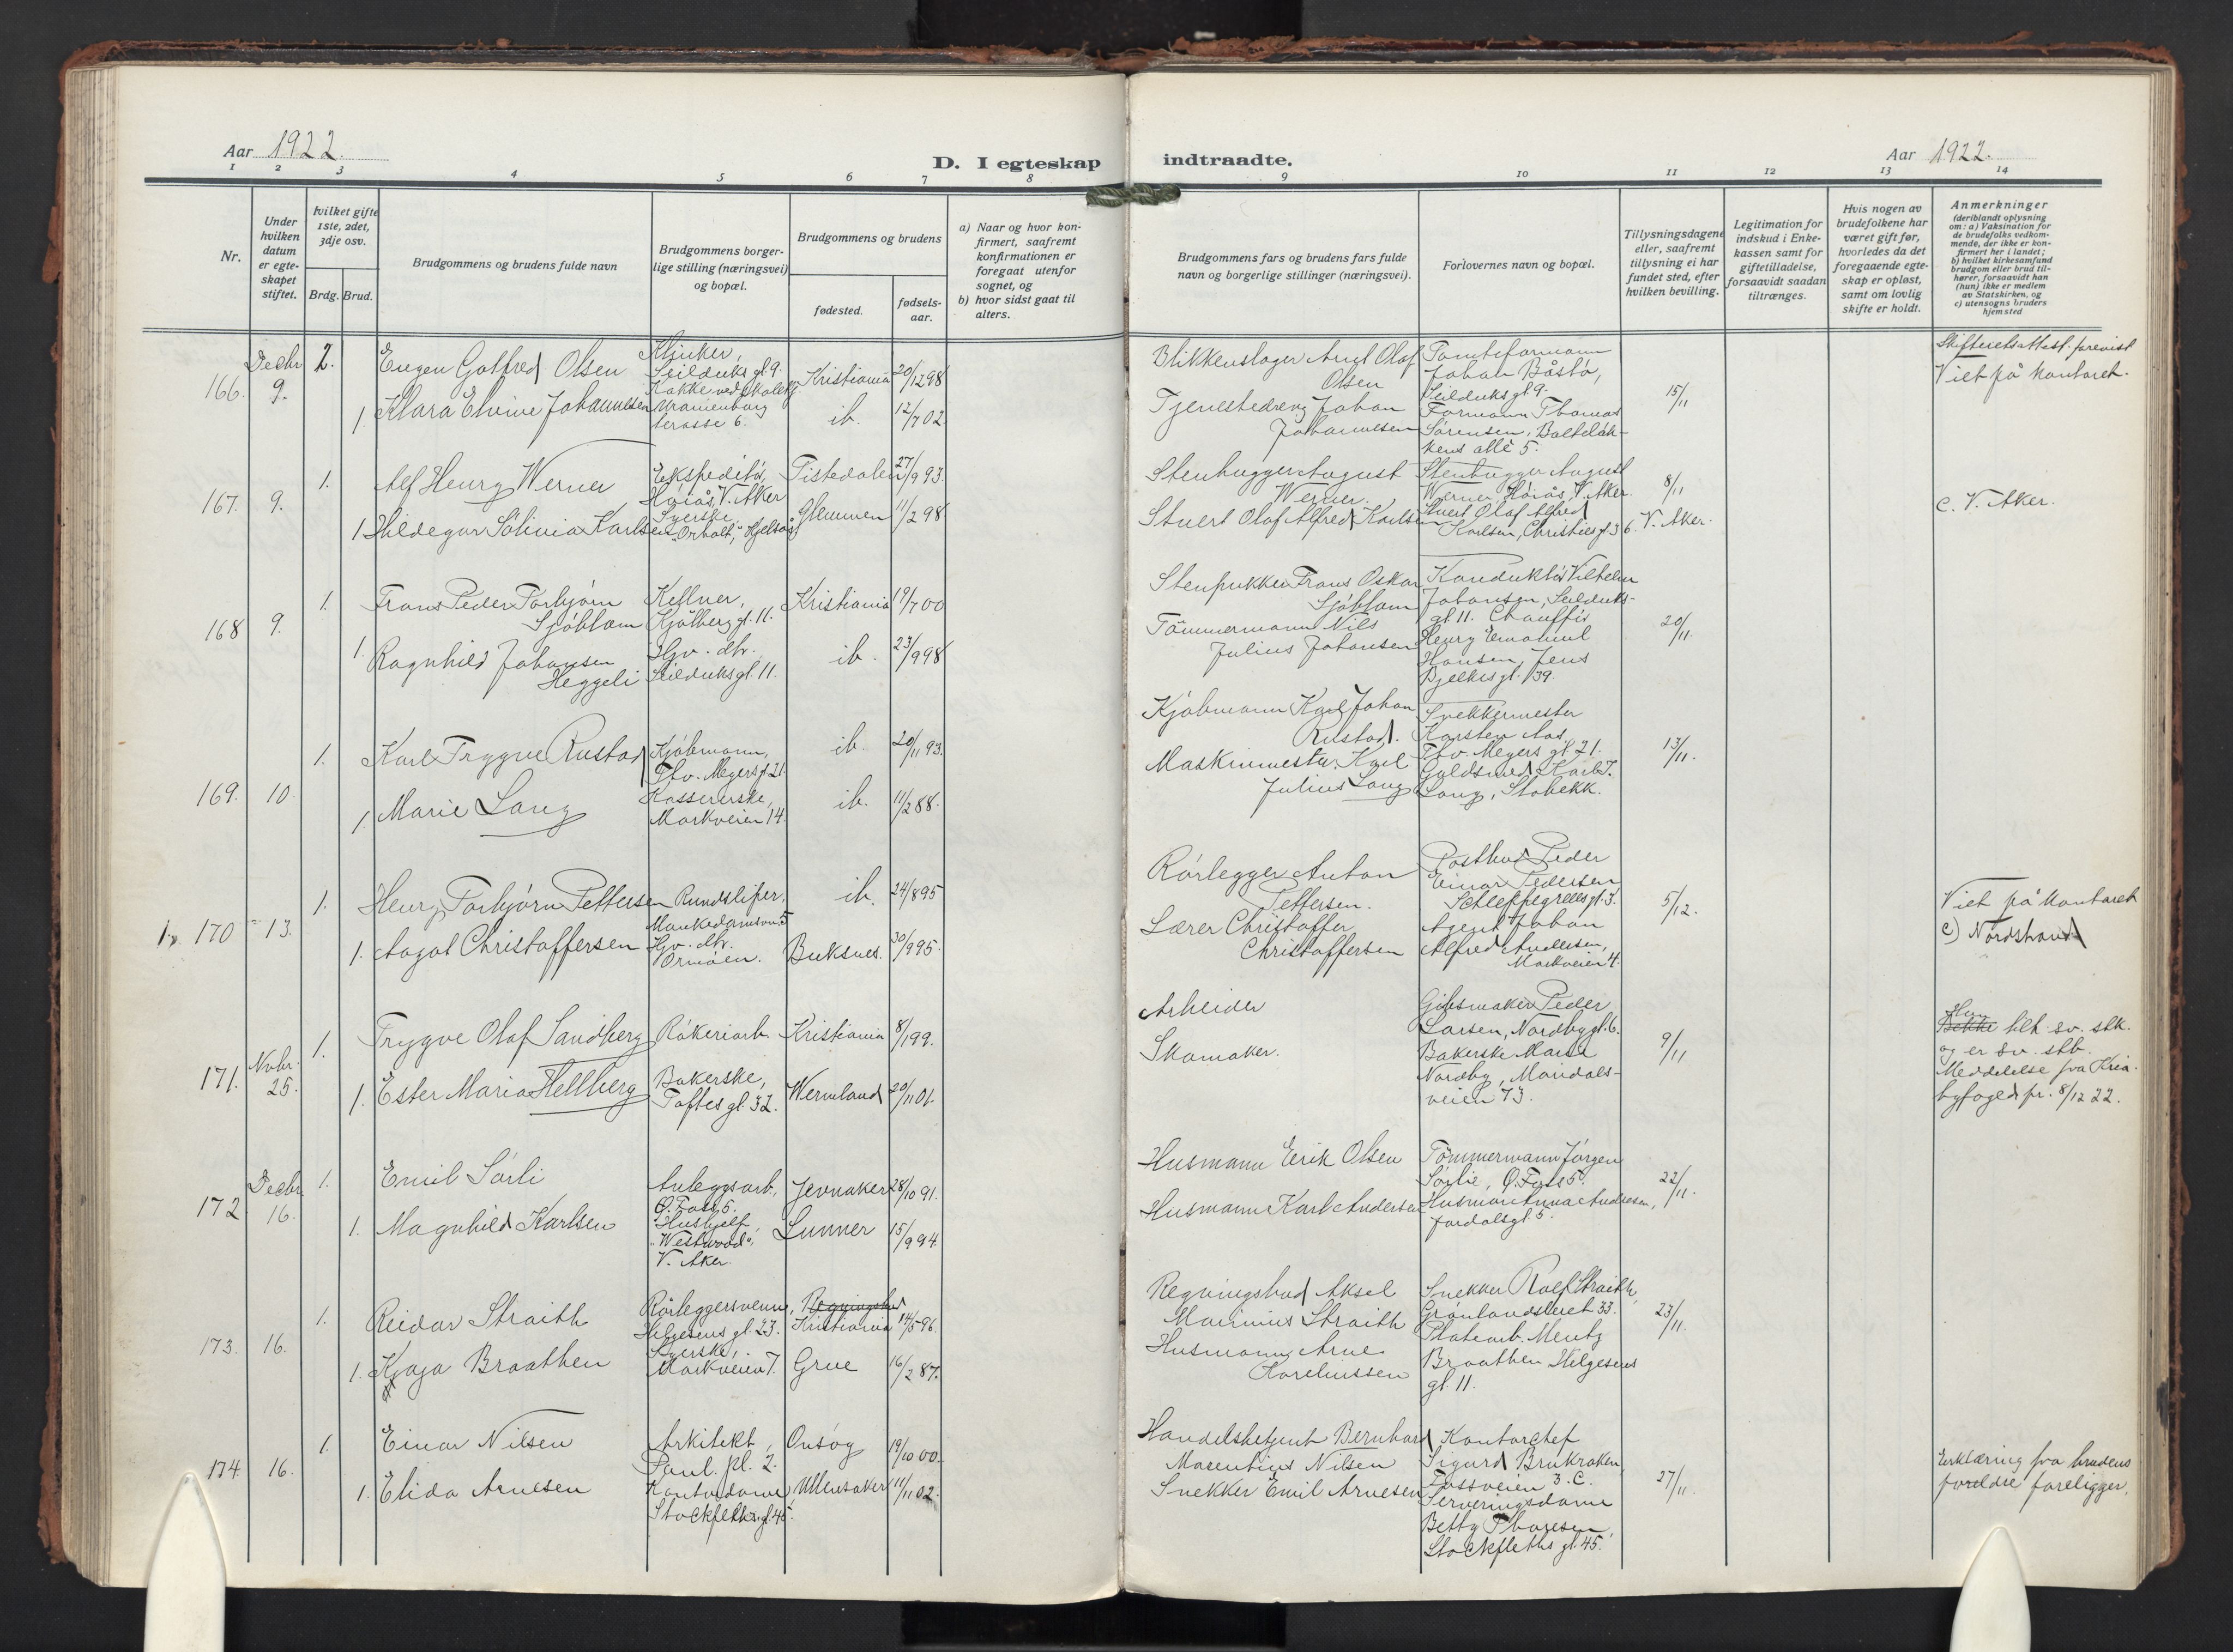 Aar 1922.
D. I egteskap indtraadte.
Aar 1922.
1 2 3 4 5 6 7 8 9 10 11 12 13 14
Nr.
Under hvilken datum er egte- skapet stiftet.
hvilket gifte 1ste, 2det, 3dje osv.
Brdg. Brud.
Brudgommens og brudens fulde navn
Brudgommens borger- lige stilling (næringsvei) og bopæl.
Brudgommens og brudens
fødested.
fødsels- aar.
a) Naar og hvor kon- firmert, saafremt konfirmationen er foregaat utenfor sognet, og
b) hvor sidst gaat til alters.
Brudgommens fars og brudens fars fulde navn og borgerlige stillinger (næringsvei).
Forlovernes navn og bopæl.
Tillysningsdagene eller, saafremt tillysning ei har fundet sted, efter hvilken bevilling.
Legitimation for indskud i Enke- kassen samt for giftetilladelse, forsaavidt saadan tiltrænges.
Hvis nogen av brudefolkene har været gift før, hvorledes da det foregaaende egte- skap er opløst, samt om lovlig skifte er holdt.
Anmerkninger
(deriblandt oplysning om: a) Vaksination for de brudefolks vedkom- mende, der ikke er kon- firmert her i landet;
b) hvilket kirkesamfund brudgom eller brud til- hører, forsaavidt han (hun) ikke er medlem av Statskirken, og
c) utensogns bruders hjemsted
166. Decbr 9.
2. Eugen Gotfred Olsen
Klinker, Seilduks gt. 9.
Kristiania 20/12 98
1. Klara Elvine Johannesen
Kokke ved skolekj. Uranienborg terasse 6.
ib. 12/7 02.
Blikkenslager Arnt Olaf Olsen
Tjenestedreng Johan Johannesen
Tomteformann Johan Båstø, Seilduks gt. 9.
Formann Thomas Sørensen, Balteløk- kens allé 5.
15/11
Skifteretsattest forevist
Viet på kontoret.
167. 9.
1. Alf Henry Werner
Ekspeditør, Høiås, V. Aker
Tistedalen 27/9 93.
1. Hildegar Solivia Karlsen
Syerske, "Orholt," Hjeltås
Glemmen 11/2 98
Stenhugger August Werner.
Stuert Olaf Alfred Karlsen
Stenhugger August Werner, Høiås, V. Aker.
Stuert Olaf Alfred Karlsen, Christies gt 36.
8/11
V. Aker.
c. V. Aker.
168 9.
1. Frans Peder Torbjørn Sjöblom
Kellner, Kjølberg gt. 11.
Kristiania 19/7 00
1. Ragnhild Johansen Heggeli
Hgv. dtr. Seilduksgt. 11.
ib. 23/9 98
Stenpukker Frans Oskar Sjöblom
Tömmermann Nils Julius Johansen
Konduktör Vilhelm Johansen, Seilduks- gt 11. Chauffør
Henry Emanuel Hansen, Jens Bjelkes gt. 39.
20/11.
169. 10.
1. Karl Trygve Rustad
Kjøbmann, Thv. Meyers gt 21.
ib. 20/11 93.
1. Marie Lang
Kassererske, Markveien 14.
ib. 11/2 88.
Kjøbmann Karl Johan Rustad.
Maskinmester Karl Julius Lang
Snekkermester Karsten Aas, Thv. Meyers gt 21.
Guldsmed Karl J. Lang, Stabekk.
13/11.
170 13.
1. Henry Torbjørn Pettersen
Rundsliper, Munkedamsvn. 5
ib. 24/8 95
1. Aagot Christoffersen
Hgv. dtr. Ormøen.
Buksnes. 30/9 95.
Rørlegger Anton Pettersen.
Lærer Christoffer Christoffersen
Postbud Peder Einar Pedersen Schleppegrells gt. 3.
Agent Johan Alfred Andersen, Markveien 4.
5/12.
Viet på kontoret
c) Nordstrand
171. Nvbr. 25.
1. Trygve Olaf Sandberg
Røkeriarb.
Kristiania 8/1 99.
1. Ester Maria Hellberg
Bakerske, Toftes gt. 32.
Wermland 20/11 01.
Arbeider
Skomaker.
Gibsmaker Peder Larsen, Nordbygt. 6.
Bakerske Marie Nordby, Maridals- veien 73.
9/11
Hun
og er sv. stb.
Meddelelse fra Kria. byfoged pr. 8/12 22.
172 Decbr 16.
1. Emil Sørli
Anleggsarb, Ø. Foss 5.
Jevnaker 28/10 91.
1. Magnhild Karlsen
Hushjelp, "Westwood", V. Aker.
Lunner 15/9 94.
Husmann Erik Olsen
Husmann Karl Andersen
Tömmermann Jørgen Sørlie, Ø. Foss 5.
Husmor Anna Andersen, Jordalsgt. 5.
22/11.
173. 16.
1. Reidar Straith
Rørleggersvenn, Helgesens gt. 23.
Regningsbud Kristiania 14/5 96.
1. Kjaja Braathen
Syerske, Markveien 7.
Grue 16/2 87.
Regningsbud Aksel Marinius Straith
Husmann Arne Karelinssen
Snekker Rolf Straith, Grønlandsleret 33.
Platearb. Mentz Braathen Helgesens gt. 11.
23/11.
174 16.
1. Einar Nilsen
Arkitekt, Paul. pl. 2.
Onsøy 19/10 00.
1. Elida Arnesen
Kontordame Stockfleths gt. 45.
Ullensaker 11/11 02.
Handelsbetjent Bernhard Marentius Nilsen
Snekker Emil Arnesen
Kontorchef Sigurd Brukraken, Fossveien 3. C.
Serveringsdame Betty Thoresen, Stockfleths gt. 45.
27/11.
Erklæring fra brudens foreldre foreligger.